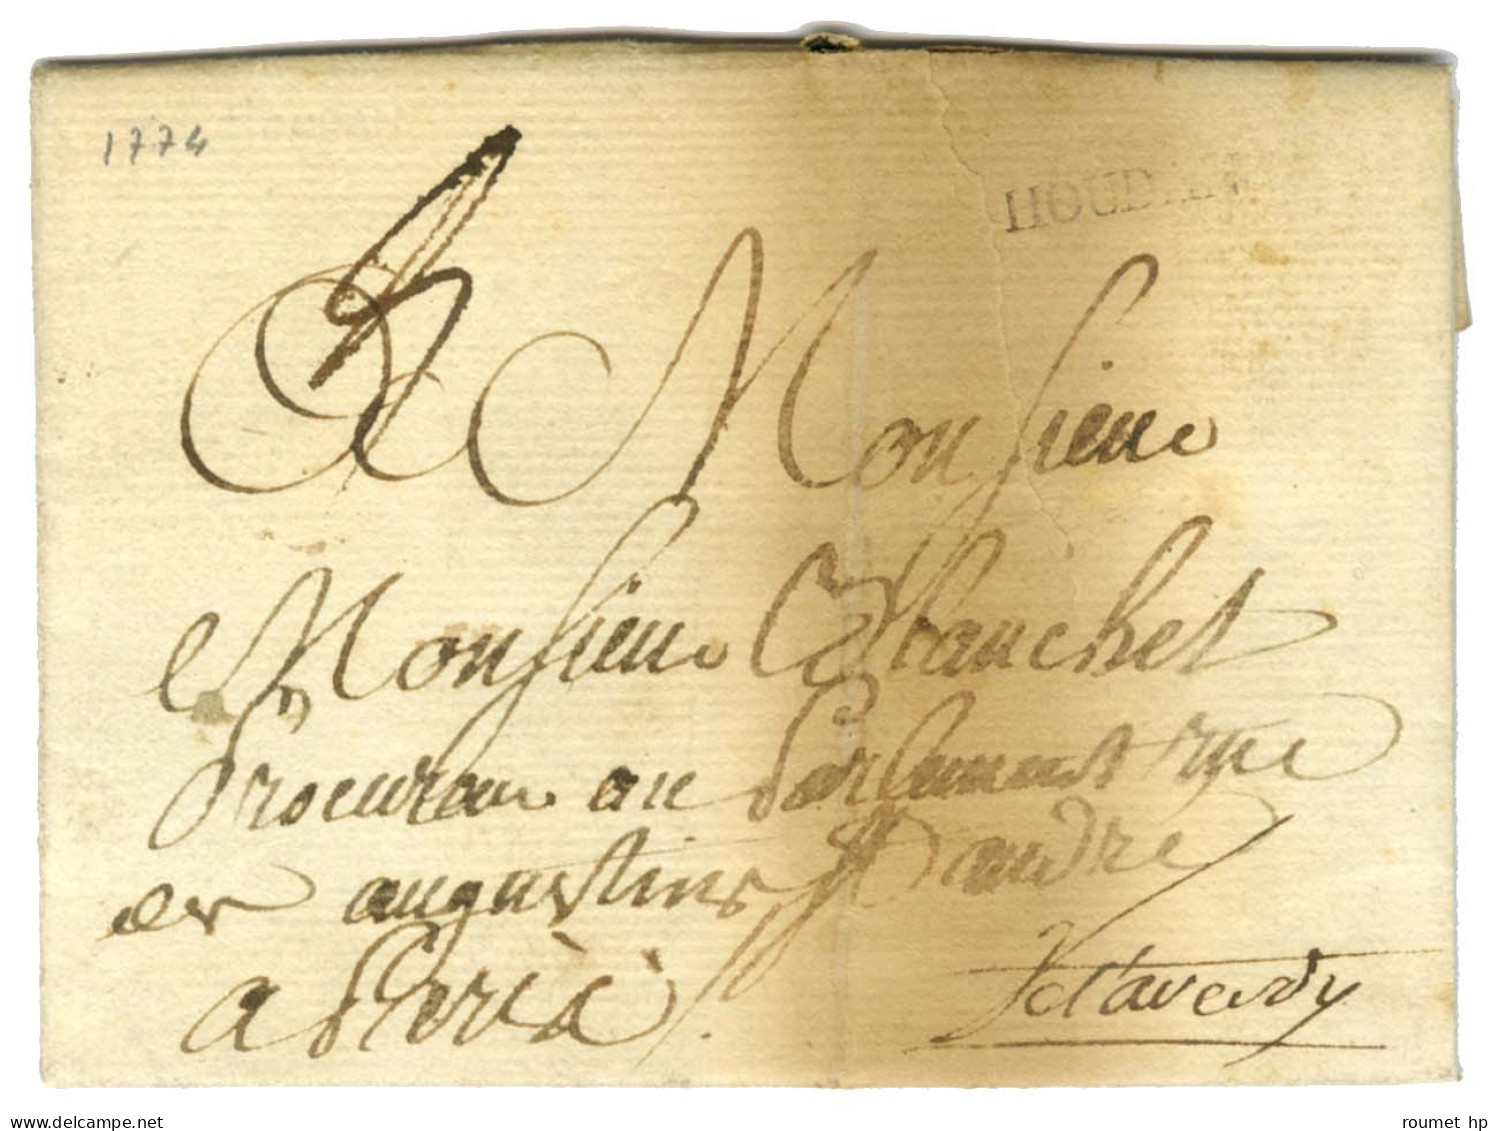 1774
HOUDAN
A Monsieur
Monsieur Blanchet
Procureur au Parlement rue
des augustins St andré
a Paris
De l'averdy
www.delcampe.net
roumet hp